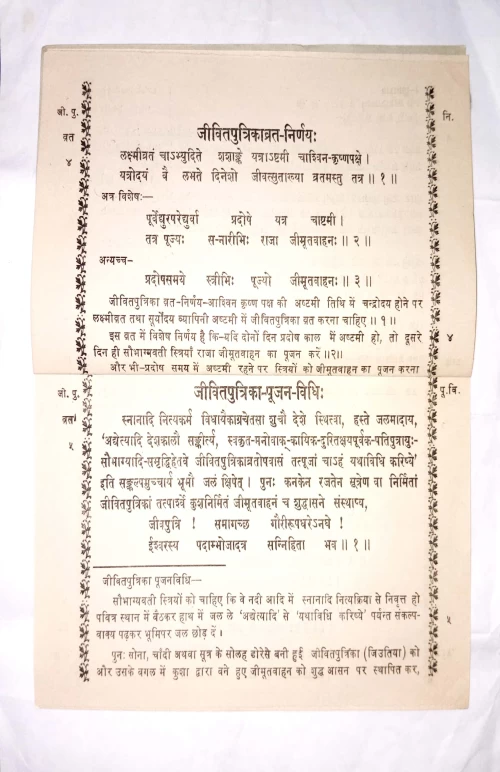 जी. पु.
व्रत
४
नि.
जीवितपुत्रिकाव्रत-निर्णयः
लक्ष्मीव्रतं चाऽभ्युदिते शशाङ्के यत्राऽष्टमी चाश्विन-कृष्णपक्षे ।
यत्रोदयं वै लभते दिनेशो जीवत्सुताख्या व्रतमस्तु तत्र ॥ १ ॥
अत्र विशेषः—
पूर्वेद्युरपरेद्युर्वा प्रदोषे यत्र चाष्टमी ।
तत्र पूज्यः स-नारीभिः राजा जीमूतवाहनः ॥ २ ॥
अन्यच्च–
प्रदोषसमये स्त्रीभिः पूज्यो जीमूतवाहनः ॥ ३ ॥
जीवितपुत्रिका व्रत-निर्णय-आश्विन कृष्ण पक्ष की अष्टमी तिथि में चन्द्रोदय होने पर
लक्ष्मीव्रत तथा सूर्योदय व्यापिनी अष्टमी में जीवितपुत्रिका व्रत करना चाहिए ॥ १ ॥
इस व्रत में विशेष निर्णय है कि-यदि दोनों दिन प्रदोष काल में अष्टमी हो, तो दूसरे
दिन ही सौभाग्यवती स्त्रियाँ राजा जीमूतवाहन का पूजन करें ॥२॥
और भी-प्रदोष समय में अष्टमी रहने पर स्त्रियों को जीमूतवाहन का पूजन करना
४
जी. पु.
व्रत
५
पू.वि.
जीवितपुत्रिका-पूजन-विधिः
स्नानादि नित्यकर्म विधायैकाग्रचेतसा शुचौ देशे स्थित्वा, हस्ते जलमादाय,
'अद्येत्यादि देशकालौ सङ्कीर्त्य, स्वकृत-मनोवाक्-कायिक-दुरितक्षयपूर्वक-पतिपुत्रायुः-
सौभाग्यादि-समृद्धिहेतवे जीवितपुत्रिकाव्रतोपवासं तत्पूजां चाऽहं यथाविधि करिष्ये'
इति सङ्कल्पमुच्चार्य भूमौ जलं क्षिपेत् । पुनः कनकेन रजतेन सूत्रेण वा निर्मितां
जीवितपुत्रिकां तत्पार्श्वे कुशनिर्मितं जीमूतवाहनं च शुद्धासने संस्थाप्य,
जीवपुत्रि ! समागच्छ गौरीरूपधरेऽनघे !
ईश्वरस्य पदाम्भोजादत्र सन्निहिता भव ॥ १ ॥
जीवितपुत्रिका पूजनविधि—
सौभाग्यवती स्त्रियों को चाहिए कि वे नदी आदि में स्नानादि नित्यक्रिया से निवृत्त हो
पवित्र स्थान में बैठकर हाथ में जल ले 'अद्येत्यादि' से 'यथाविधि करिष्ये' पर्यन्त संकल्प-
वाक्य पढ़कर भूमिपर जल छोड़ दें ।
५
पुनः सोना, चांदी अथवा सूत्र के सोलह डोरेसे बनी हुई जीवितपुत्रिका (जिउतिया) को
और उसके बगल में कुशा द्वारा बने हुए जीमूतवाहन को शुद्ध आसन पर स्थापित कर,